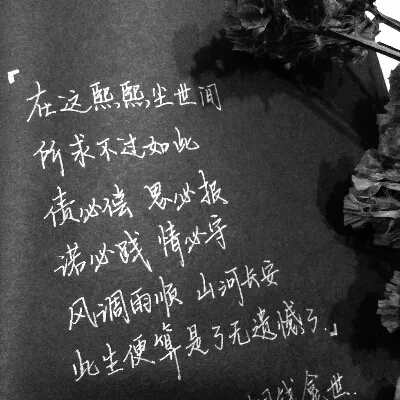 「在这熙熙尘世间
所求不过如此
债必偿 恩必报
诺必践 情必守
风调雨顺 山河长安
此生便算是了无遗憾了.」